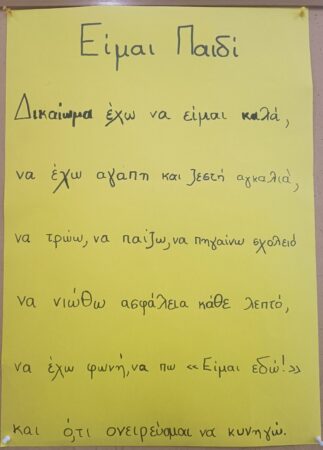 Είμαι Παιδί
Δικαίωμα έχω να είμαι καλά,
να έχω αγάπη και ζεστή αγκαλιά,
να τρώω, να παίζω, να πηγαίνω σχολειό
να νιώθω ασφάλεια κάθε λεπτό,
να έχω φωνή, να πω «Είμαι εδώ!»
και ό,τι ονειρεύομαι να κυνηγώ.